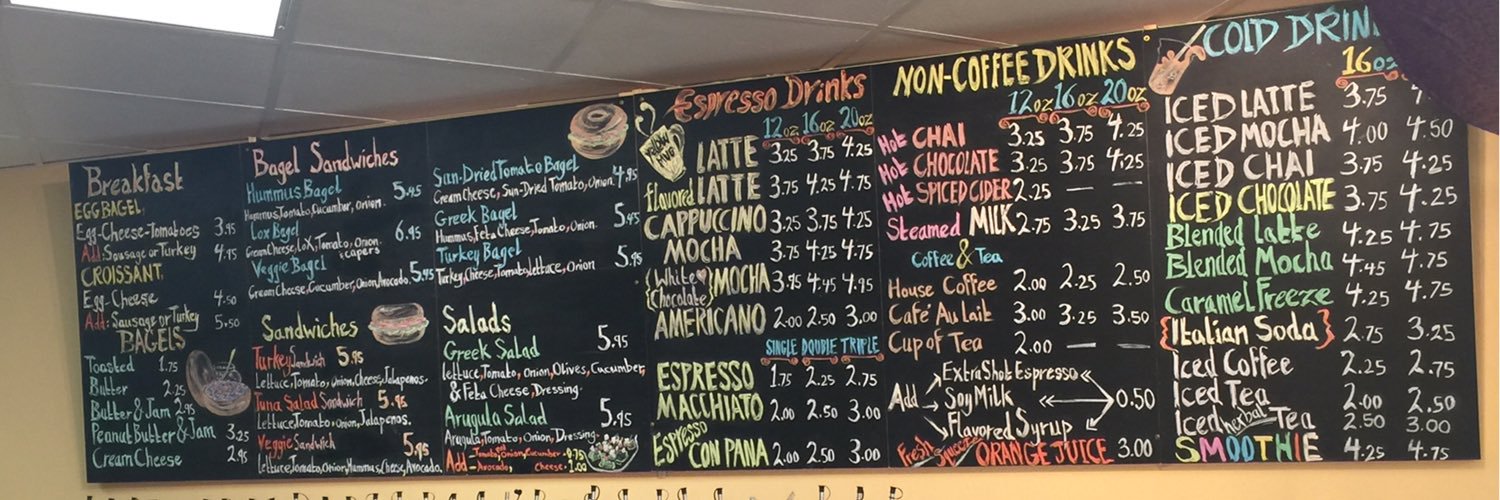 Breakfast
EGG BAGEL
Egg-Cheese-Tomatoes 3.95
Add: Sausage or Turkey 4.95
CROISSANT
Egg-Cheese 4.50
Add: Sausage or Turkey 5.50
BAGELS
Toasted 1.75
Butter 2.25
Butter & Jam 2.95
Peanut Butter & Jam 3.25
Cream Cheese 2.95
Bagel Sandwiches
Hummus Bagel 5.95
Hummus, Tomato, Cucumber, Onion.
Lox Bagel 6.95
Cream Cheese, Lox, Tomato, Onion.
capers
Veggie Bagel 5.95
Cream Cheese, Cucumber, Onion, Avocado.
Sandwiches
Turkey Sandwich 5.95
Lettuce, Tomato, Onion, Cheese, Jalapenos.
Tuna Salad Sandwich 5.95
Lettuce, Tomato, Onion, Jalapenos.
Veggie Sandwich 5.95
Lettuce, Tomato, Onion, Hummus, Cheese, Avocado.
Sun-Dried Tomato Bagel 4.95
Cream Cheese, Sun-Dried Tomato, Onion.
Greek Bagel 5.95
Hummus, Feta Cheese, Tomato, Onion.
Turkey Bagel 5.95
Turkey, Cheese, Tomato, Lettuce, Onion
Salads
Greek Salad 5.95
Lettuce, Tomato, Onion, Olives, Cucumber,
& Feta Cheese, Dressing.
Arugula Salad 5.95
Arugula, Tomato, Onion, Dressing.
Add - Tomato, Onion, Cucumber - 0.75
Avocado, Cheese. 1.00
Espresso Drinks
12oz 16oz 20oz
LATTE 3.25 3.75 4.25
flavored LATTE 3.75 4.25 4.75
CAPPUCCINO 3.25 3.75 4.25
MOCHA 3.75 4.25 4.75
{White Chocolate} MOCHA 3.95 4.45 4.95
AMERICANO 2.00 2.50 3.00
SINGLE DOUBLE TRIPLE
ESPRESSO 1.75 2.25 2.75
MACCHIATO 2.00 2.50 3.00
ESPRESSO CON PANA 2.00 2.50 3.00
NON-COFFEE DRINKS
12oz 16oz 20oz
Hot CHAI 3.25 3.75 4.25
Hot CHOCOLATE 3.25 3.75 4.25
Hot SPICED CIDER 2.25 — —
Steamed MILK 2.75 3.25 3.75
Coffee & Tea
House Coffee 2.00 2.25 2.50
Café Au Lait 3.00 3.25 3.50
Cup of Tea 2.00 — —
Add Extra Shot Espresso
Soy Milk 0.50
Flavored Syrup
Fresh Squeeze ORANGE JUICE 3.00
COLD DRIN
16oz
ICED LATTE 3.75
ICED MOCHA 4.00 4.50
ICED CHAI 3.75 4.25
ICED CHOCOLATE 3.75 4.25
Blended Latte 4.25 4.75
Blended Mocha 4.45 4.75
Caramel Freeze 4.25 4.75
{Italian Soda} 2.75 3.25
Iced Coffee 2.25 2.75
Iced Tea 2.00 2.50
Iced herbal Tea 2.50 3.00
SMOOTHIE 4.25 4.75